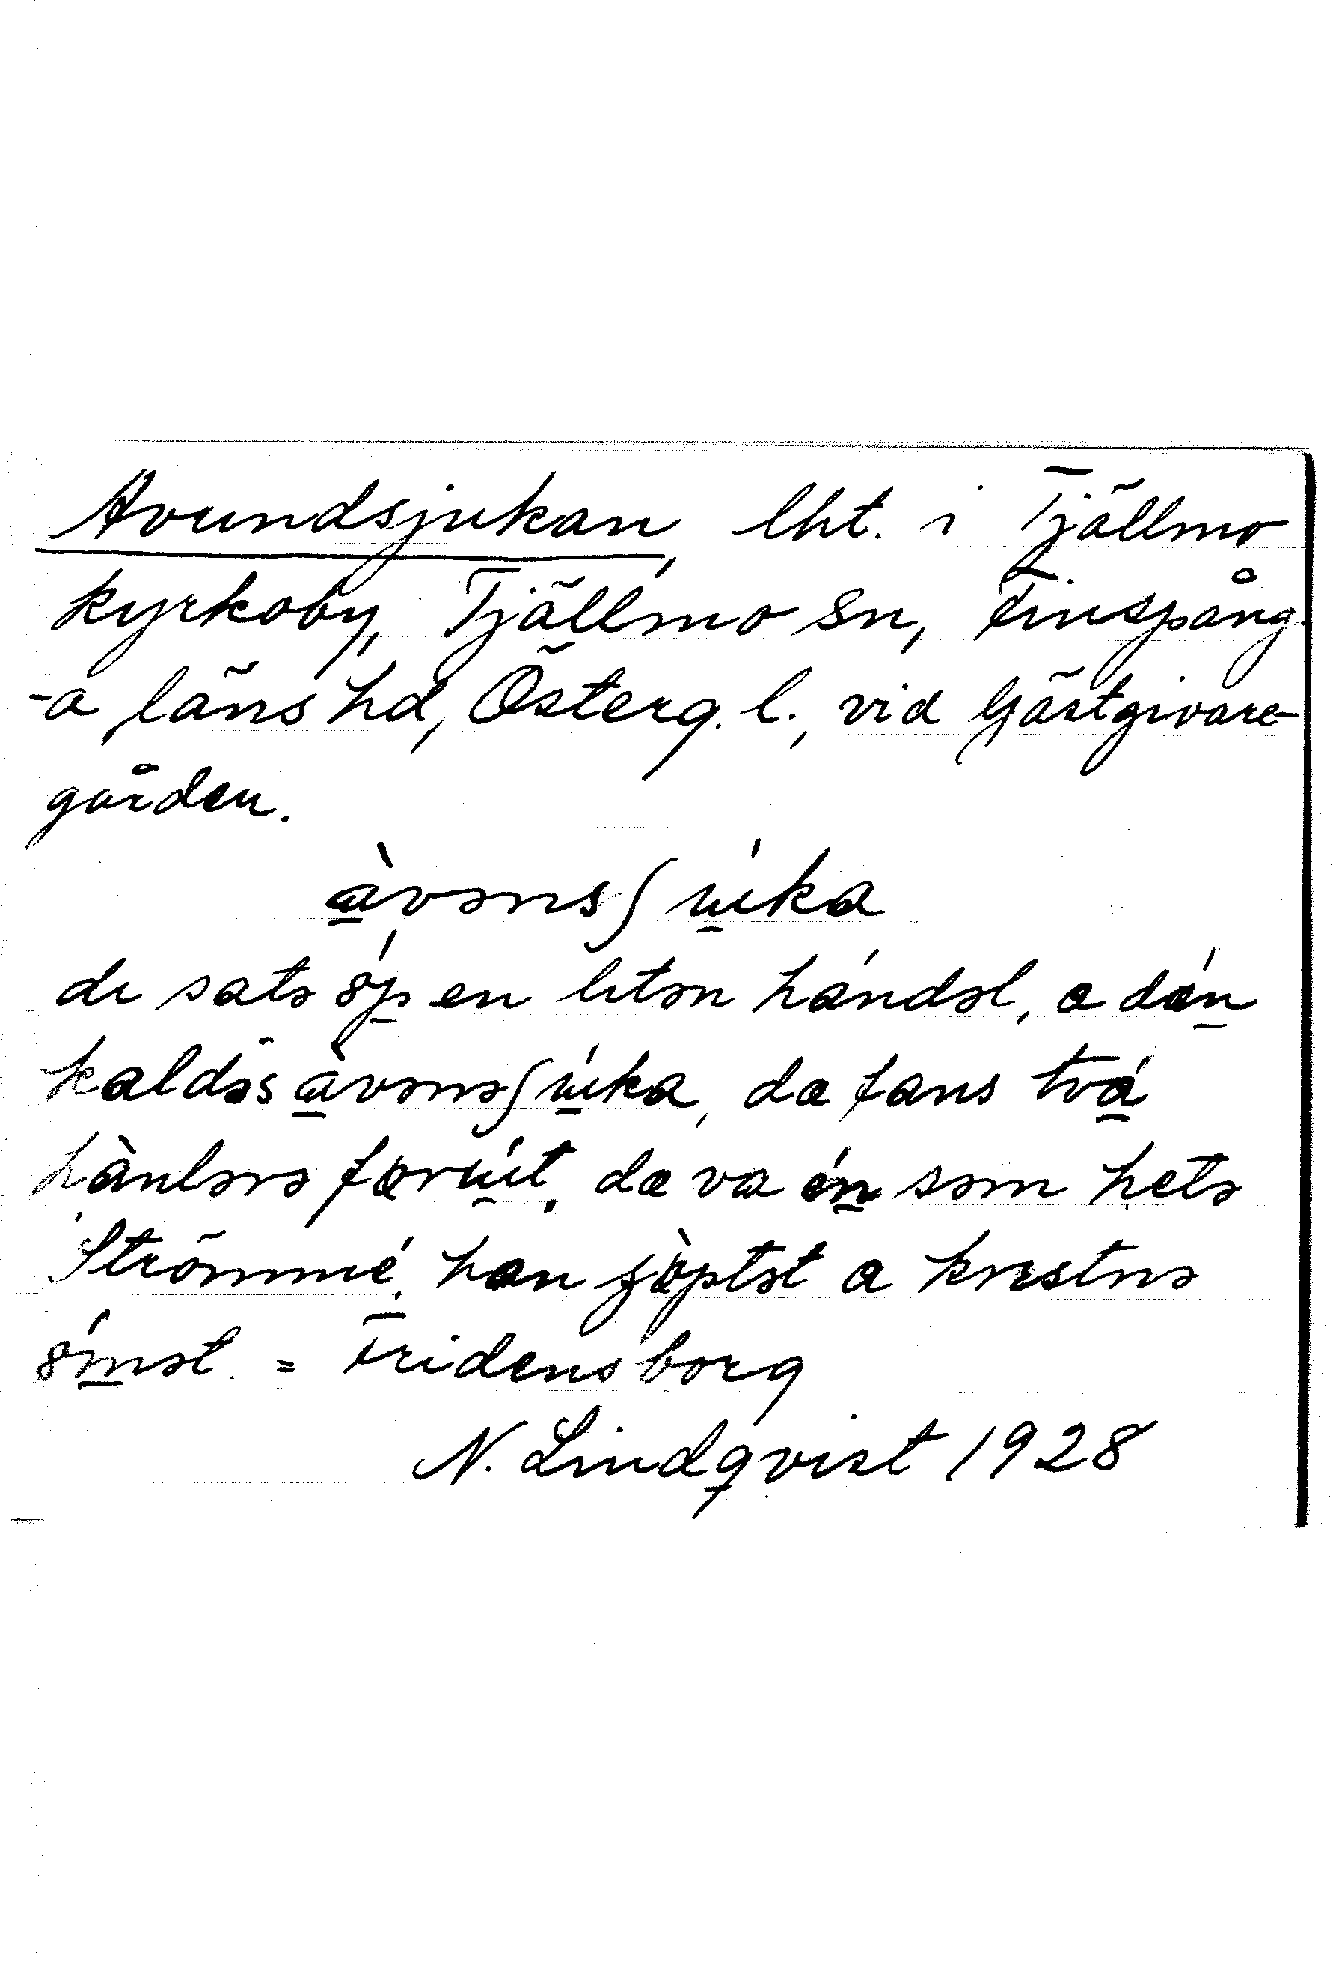 Avundsjukan, lht. i Tjällmo
kyrkoby, Tjällmo sn, Finspång-
-a läns hd, Österg. l., vid Gästgivare-
gården.
à̱vənsʃú̱ka
dı satə 8́p̱ en lıtən hándəl, a dǽṉ
kaldəs à̱vənəʃú̱ka, dæ fans tvá̱
hànlərə fœrú̱t. dæ va éṉ səm hetə
Strömmé, han ɟö̀ptət a krıstnə
8́m̱ət. = Fridensborg
N. Lindqvist 1928